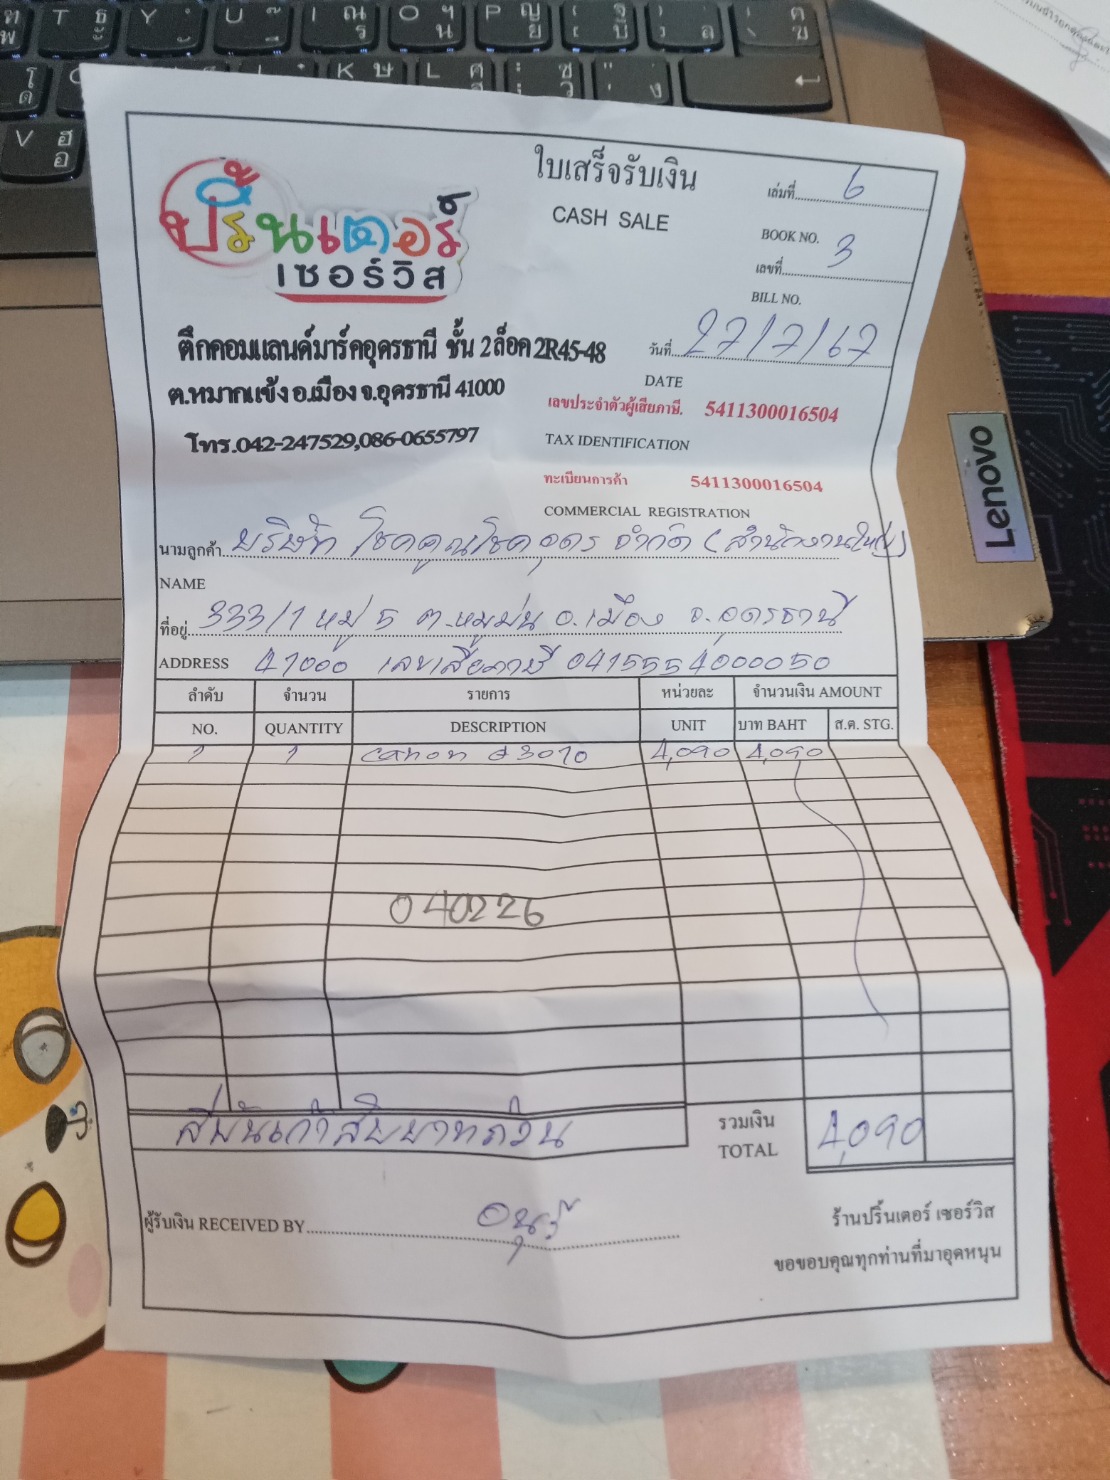 ปริ้นเตอร์
เซอร์วิส
ใบเสร็จรับเงิน
CASH SALE
เล่มที่ 6
BOOK NO.
เลขที่ 3
BILL NO.
ตึกคอมแลนด์มาร์คอุดรธานี ชั้น 2 ล็อค 2R45-48
ต.หมากแข้ง อ.เมือง จ.อุดรธานี 41000
โทร.042-247529,086-0655797
วันที่ 27/7/67
DATE
เลขประจำตัวผู้เสียภาษี. 5411300016504
TAX IDENTIFICATION
ทะเบียนการค้า 5411300016504
COMMERCIAL REGISTRATION
นามลูกค้า บริษัท โชคคูณโชคอุดร จำกัด (สำนักงานใหญ่)
NAME
ที่อยู่ 333/1 หมู่ 5 ต.หมูม่น อ.เมือง จ.อุดรธานี
ADDRESS 41000 เลขเสียภาษี 0415554000050
ลำดับ จำนวน รายการ หน่วยละ จำนวนเงิน AMOUNT
NO. QUANTITY DESCRIPTION UNIT บาท BAHT ส.ต. STG.
1 1 canon G3010 4,090 4,090
040226
สี่พันเก้าสิบบาทถ้วน
รวมเงิน
TOTAL
4,090
ผู้รับเงิน RECEIVED BY
ร้านปริ้นเตอร์ เซอร์วิส
ขอขอบคุณทุกท่านที่มาอุดหนุน
Lenovo
T ธ Y U I ณ ร O ฯ น P ญ ย
K ษ L ศ ส ซ ว ง
V ฮ อ